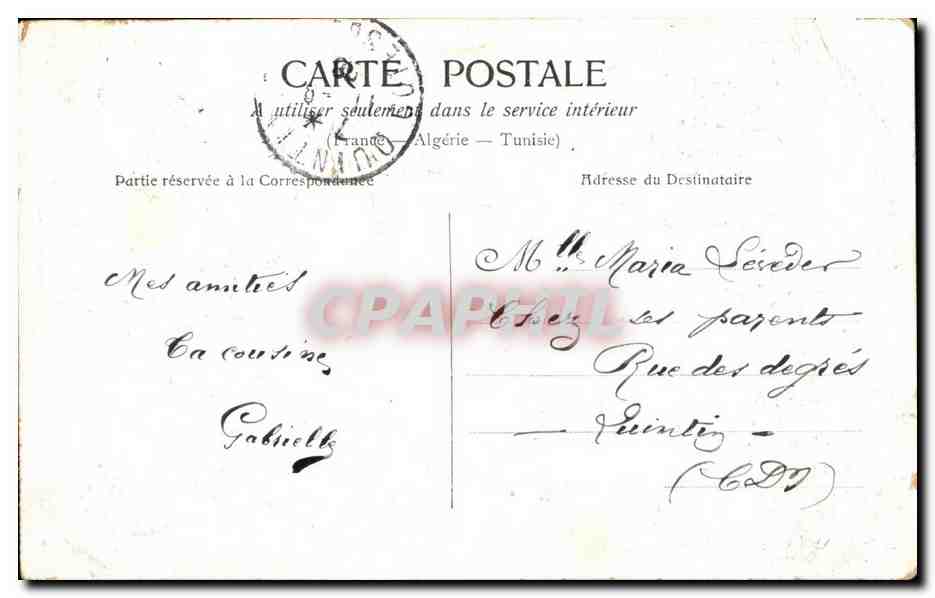 CARTE POSTALE
A utiliser seulement dans le service intérieur
(France — Algérie — Tunisie)
QUINTIN
Partie réservée à la Correspondance
Adresse du Destinataire
Mes amitiés
Ta cousine
Gabrielle
Mlle Maria Léveder
Chez ses parents
Rue des degrés
— Quintin —
(CDN)
CPAPHIL